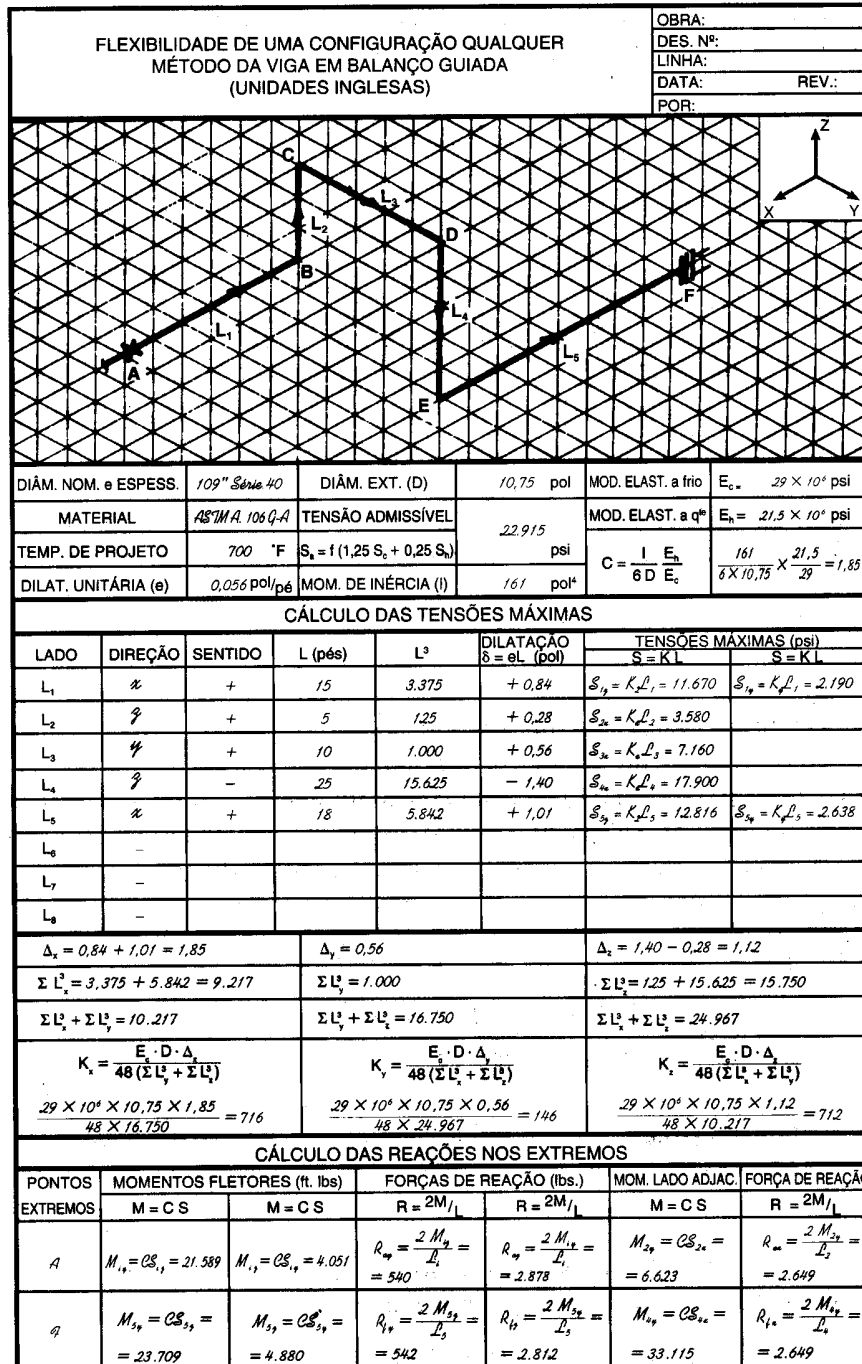 FLEXIBILIDADE DE UMA CONFIGURAÇÃO QUALQUER
MÉTODO DA VIGA EM BALANÇO GUIADA
(UNIDADES INGLESAS)
OBRA:
DES. Nº:
LINHA:
DATA: REV.:
POR:
Z
X Y
C
L₃
L₂
D
B
F
L₄
L₁
L₅
A
E
DIÂM. NOM. e ESPESS. 109" Série 40 DIÂM. EXT. (D) 10,75 pol MOD. ELAST. a frio E_c = 29 × 10⁶ psi
MATERIAL ASTM A. 106 G-A TENSÃO ADMISSÍVEL 22.915 psi MOD. ELAST. a qᵗᵉ E_h = 21,5 × 10⁶ psi
TEMP. DE PROJETO 700 °F S_a = f (1,25 S_c + 0,25 S_h) C = I/6 D E_h/E_c 161/6 × 10,75 × 21,5/29 = 1,85
DILAT. UNITÁRIA (e) 0,056 pol/pé MOM. DE INÉRCIA (I) 161 pol⁴
CÁLCULO DAS TENSÕES MÁXIMAS
LADO DIREÇÃO SENTIDO L (pés) L³ DILATAÇÃO δ = eL (pol) TENSÕES MÁXIMAS (psi)
S = K L S = K L
L₁ x + 15 3.375 + 0,84 S₁ = K L₁ = 11.670 S₁ = K L₁ = 2.190
L₂ z + 5 125 + 0,28 S₂ = K L₂ = 3.580
L₃ y + 10 1.000 + 0,56 S₃ = K L₃ = 7.160
L₄ z − 25 15.625 − 1,40 S₄ = K L₄ = 17.900
L₅ x + 18 5.842 + 1,01 S₅ = K L₅ = 12.816 S₅ = K L₅ = 2.638
L₆ –
L₇ –
L₈ –
Δx = 0,84 + 1,01 = 1,85 Δy = 0,56 Δz = 1,40 − 0,28 = 1,12
Σ L³x = 3,375 + 5.842 = 9.217 Σ L³y = 1.000 Σ L³z = 125 + 15.625 = 15.750
Σ L³x + Σ L³y = 10.217 Σ L³y + Σ L³z = 16.750 Σ L³x + Σ L³z = 24.967
Kx = E_c · D · Δx/48 (Σ L³y + Σ L³z) Ky = E_c · D · Δy/48 (Σ L³x + Σ L³z) Kz = E_c · D · Δz/48 (Σ L³x + Σ L³y)
29 × 10⁶ × 10,75 × 1,85/48 × 16.750 = 716 29 × 10⁶ × 10,75 × 0,56/48 × 24.967 = 146 29 × 10⁶ × 10,75 × 1,12/48 × 10.217 = 712
CÁLCULO DAS REAÇÕES NOS EXTREMOS
PONTOS EXTREMOS MOMENTOS FLETORES (ft. lbs) FORÇAS DE REAÇÃO (lbs.) MOM. LADO ADJAC. FORÇA DE REAÇÃO
M = C S M = C S R = 2M/L R = 2M/L M = C S R = 2M/L
A M₁ = CS₁ = 21.589 M₁ = CS₁ = 4.051 R = 2 M₁/L₁ = = 540 R = 2 M₁/L₁ = = 2.878 M₂ = CS₂ = = 6.623 R = 2 M₂/L₂ = = 2.649
M₅ = CS₅ = = 23.709 M₅ = CS₅ = = 4.880 R = 2 M₅/L₅ = = 542 R = 2 M₅/L₅ = = 2.812 M₄ = CS₄ = = 33.115 R = 2 M₄/L₄ = = 2.649